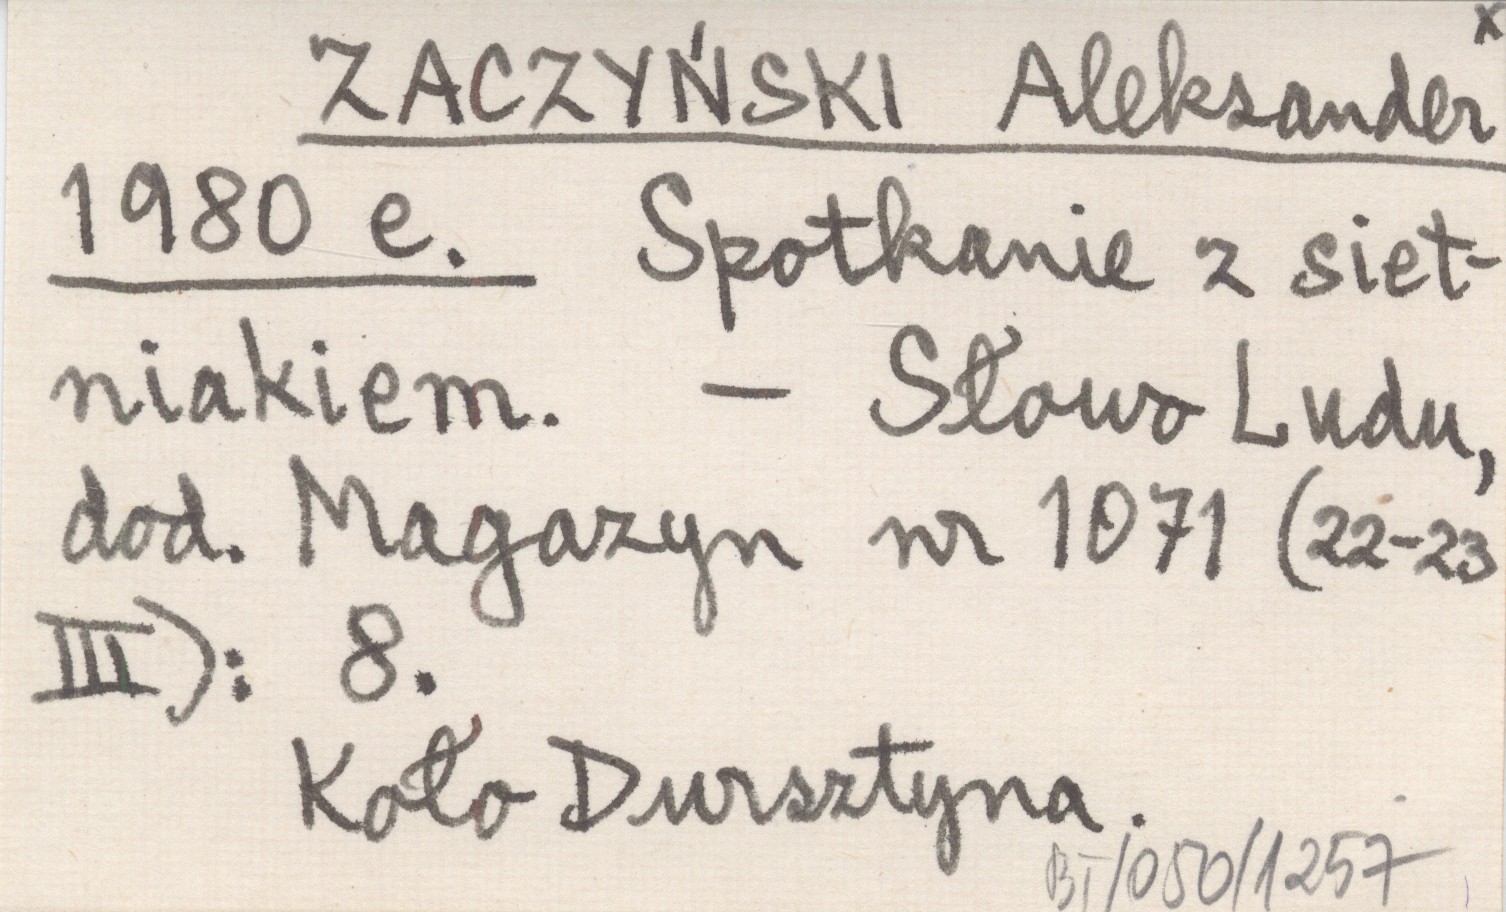 x
ZACZYŃSKI Aleksander
1980 e. Spotkanie z siet-
niakiem. – Słowo Ludu,
dod. Magazyn nr 1071 (22-23
III): 8.
Koło Dursztyna.
BT/050/1257